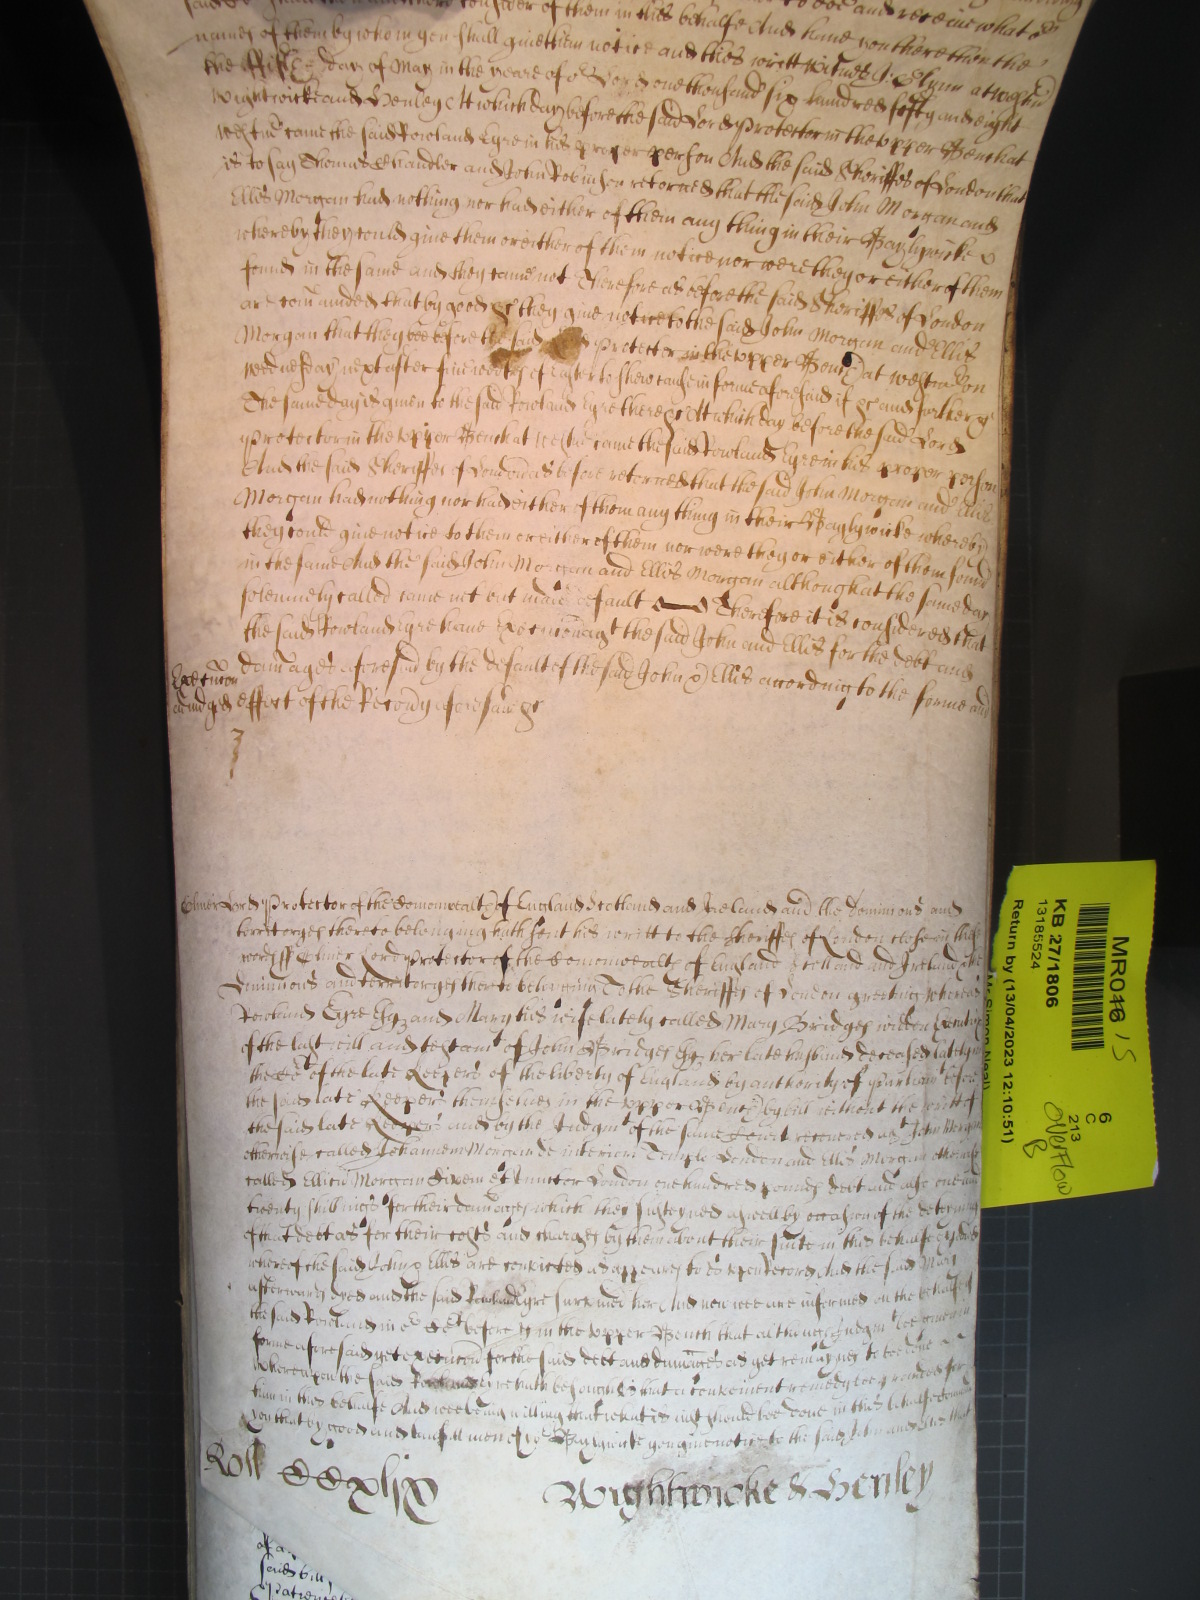 names of them by whom you shall give them notice and this writt Witnes J: Glynn at westm
the fifth day of May in the yeare of or Lord one thousand six hundred fifty and eight
Wightwicke and Henley At which day before the said Lord Protector in the upper Bench at
westmr came the said Rowland Eyre in his proper person And the said Sheriffes of London that
is to say Thomas Chandler and John Robinson returned that the said John Morgan and
Ellis Morgan had nothing nor had either of them any thing in their Baylywicke
whereby they could give them or either of them notice nor were they or either of them
found in the same and they came not Therefore as before the said Sheriffes of London
are comanded that by good &c they give notice to the said John Morgan and Ellis
Morgan that they bee before the said Lord Protector in the upper Bench at westmr on
wednesday next after five weekes of Easter to shew cause in forme aforesaid if &c and further &c
The same day is given to the said Rowland Eyre there &c At which day before the said Lord
Protector in the upper Bench at westmr came the said Rowland Eyre in his proper person
And the said Sheriffes of London as before returned that the said John Morgan and Ellis
Morgan had nothing nor had either of them any thing in their Baylywicke whereby
they could give notice to them or either of them nor were they or either of them found
in the same And the said John Morgan and Ellis Morgan although at the same day
solemnely called came not but made default Therefore it is considered that
the said Rowland Eyre have Execucon agt the said John and Ellis for the debt and
damages aforesaid by the default of the said John & Ellis according to the forme and
effect of the Record aforesaid &c
Execucon
adiudged
Oliver Lord Protector of the Comonwealth of England Scotland and Ireland and the Dominions and
territoryes thereto belonging hath sent his writt to the Sheriffes of London close in these
words ss Oliver Lord Protector of the Comonwealth of England Scotland and Ireland and the
Dominions and territoryes thereto belonging To the Sheriffes of London greeting whereas
Rowland Eyre Esqr and Mary his wife lately called Mary Bridges widow Executrix
of the last will and testamt of John Bridges Esqr her late husband deceased lately in
the Cort of the late Keepers of the liberty of England by authority of Parliamt before
the said late Keepers themselves in the upper Bench by bill without the writt of
the said late Keepers and by the Judgmt of the same Court recovered agt John Morgan
otherwise called Johannem Morgan de interiori Templo London and Ellis Morgan otherwise
called Ellicu Morgan Civem et London one hundred pounds debt and also one and
twenty shillings for their damages which they susteyned aswell by occasion of the deteyning
of that debt as for their costs and charges by them about their suite in this behalfe expended
whereof the said John & Ellis are convicted as appeares to us upon Record And the said Mary
afterwards dyed and the said Rowland Eyre survived her And now wee are informed on the behalfe of
the said Rowland in or Cort before us in the upper Bench that although Judgmt bee given in
forme aforesaid yet execucon for the said debt and damages as yet remaynes to bee done
whereupon the said Rowland Eyre hath besought us that a convenient remedy bee provided for
him in this behalfe And wee being willing that what is just should bee done in this behalfe comand
you that by good and lawfull men of yor Baylywicke you give notice to the said John and Ellis that
Roll CCxlix Wightwicke & Henley
said bill
MR046 15
KB 27/1806
13185524
Return by (13/04/2023 12:10:51)
Mr Simon Neal)
6
C
213
Overflow
B